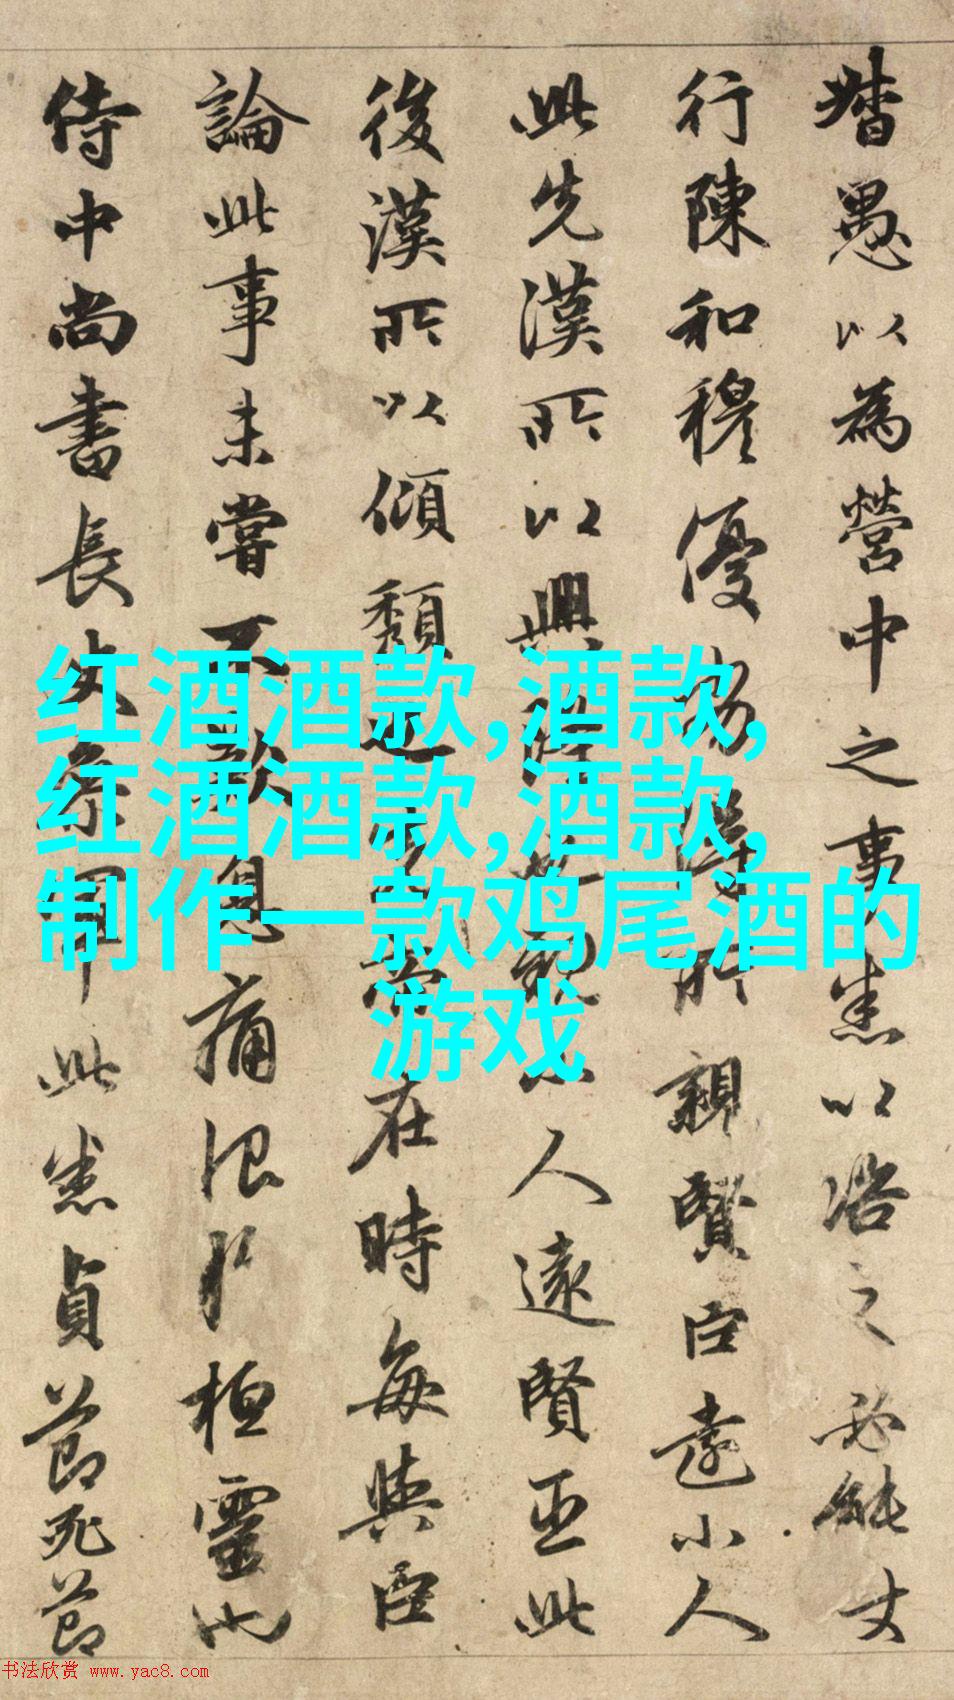 督愚以為營中之事悉以咨之必能使
行陳和穆優劣得所親賢臣遠小人
此先漢所以興隆也親小人遠賢臣此
後漢所以傾頹也先帝在時每與臣
論此事未嘗不歎息痛恨於桓靈也
侍中尚書長史參軍此悉貞節死節
红酒酒款,酒款,
红酒酒款,酒款,
制作一款鸡尾酒的
游戏
书法欣赏 www.yac8.com